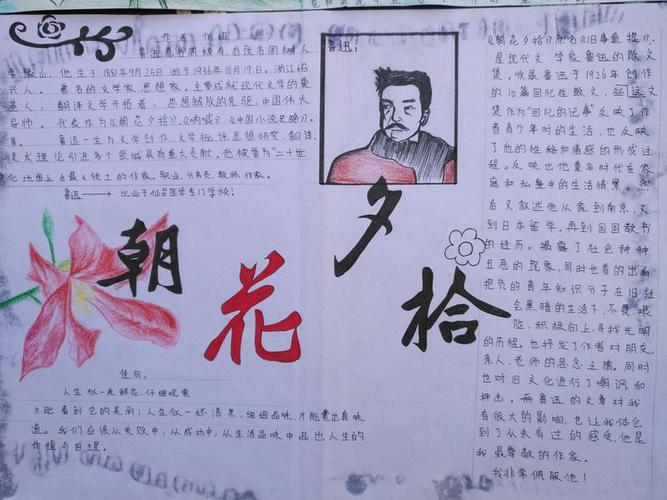 作者介绍
鲁迅原名周樟寿,后改名周树人
字豫山,他生于1881年9月25日 逝于1936年10月19日。浙江绍
兴人。著名的文学家、思想家,
基人,翻译文学开拓者,思想解放的先驱,中国伟大
导师。代表作为《朝花夕拾》,《呐喊》,《中国小说史略》,
等。鲁迅一生为文学创作,文学批评,思想研究,翻译,
美术理论引进多个领域具有重大贡献。他被誉为"二十世
文化地图上占最大领土的作家。职业,公务员,教师,作家。
鲁迅→毕业于仙台医学专门学校!
鲁迅:
朝花夕拾
佳句:
人生似一束鲜花,仔细观赏
才能看到它的美丽;人生似一杯清茶,细细品味,才能赏出真味
道。我们应该从失败中、从成功中、从生活品味中品出人生的
价值与哲理。
《朝花夕拾》原名《旧事重提》,
是现代文学家鲁迅的散文
集。收录鲁迅于1926年创作
的10篇回忆性散文,
集作为"回忆的记事"反映了作
者青少年时的生活,也反映
了他的性格和情感的形成过
程。反映出他童年时代在家
庭和私塾中的生活情景。然
后又叙述他从家到南京,又
到日本留学,再到回国教书
的经历。揭露了社会种种
丑恶的现象,同时也看的出有
抱负的青年知识分子在旧社
会黑暗的生活下,不畏艰
险,积极向上,寻找光明
的历程。也抒发了作者对朋友,
亲人,老师的思念之情。同时
也对旧文化进行了嘲讽和
抨击。鲁迅的文章对我
有很大的影响,也让我体会
到了从未有过的感受,他是
我最尊敬的作家。
我非常佩服他!